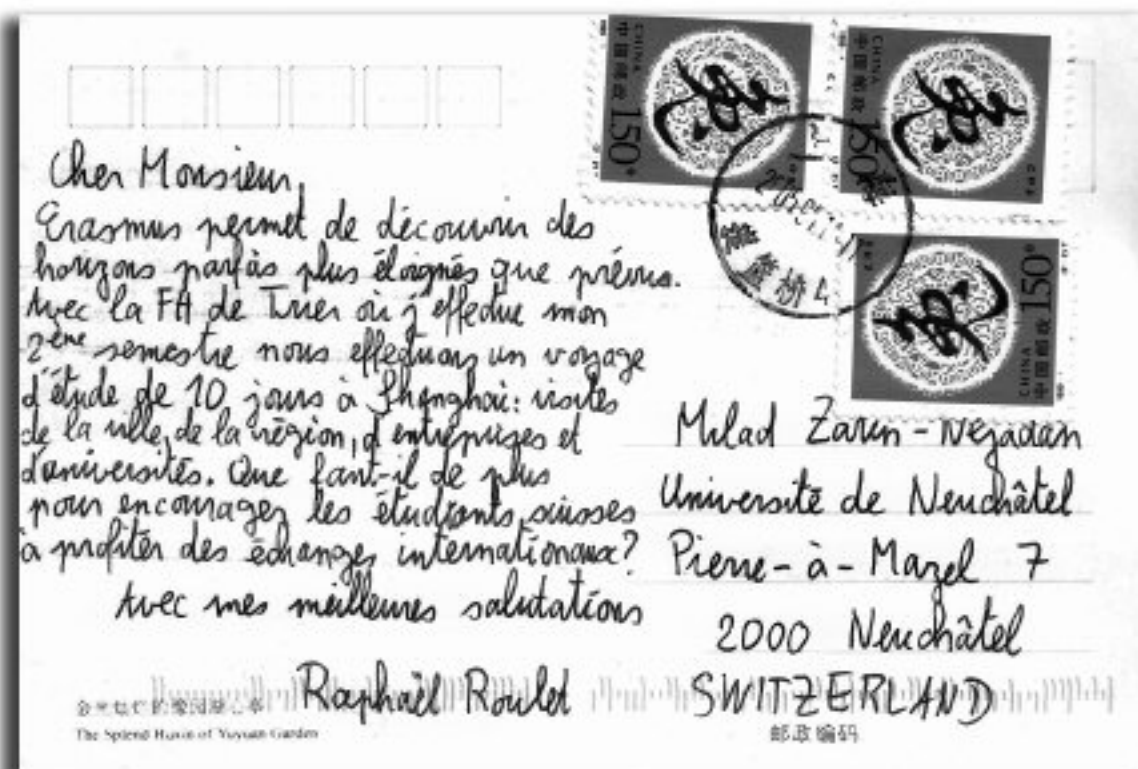 Cher Monsieur,
Erasmus permet de découvrir des
horizons parfois plus éloignés que prévus.
Avec la FH de Trier où j'effectue mon
2ème semestre nous effectuons un voyage
d'étude de 10 jours à Shanghai: visites
de la ville, de la région, d'entreprises et
d'universités. Que faut-il de plus
pour encourager les étudiants suisses
à profiter des échanges internationaux?
Avec mes meilleures salutations
Raphaël Roulet
CHINA
中国邮政
150
CHINA
中国邮政
150
CHINA
中国邮政
150
Milad Zarin-Nejadan
Université de Neuchâtel
Pierre-à-Mazel 7
2000 Neuchâtel
SWITZERLAND
The Splend of Yuyuan Garden
邮政编码